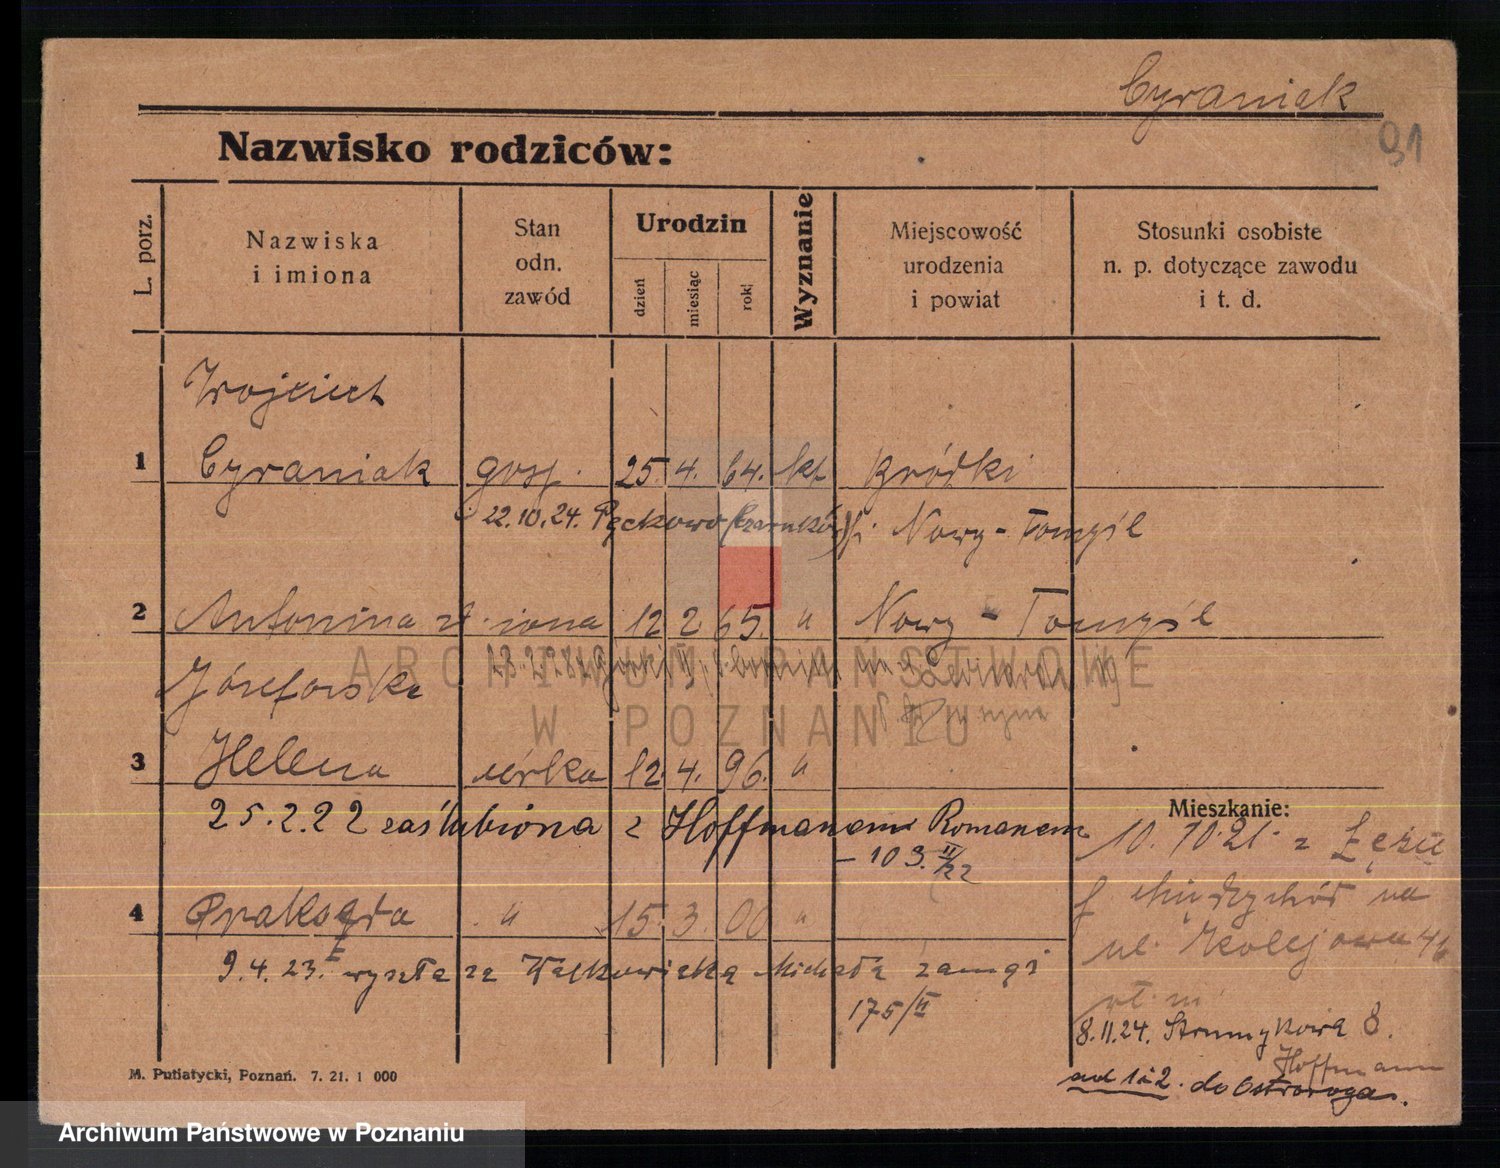 Cyraniak
91
Nazwisko rodziców:
L. porz.
Nazwiska
i imiona
Stan
odn.
zawód
Urodzin
dzień
miesiąc
rok
Wyznanie
Miejscowość
urodzenia
i powiat
Stosunki osobiste
n. p. dotyczące zawodu
i t. d.
Wojciech
1 Cyraniak gosp. 25. 4. 64. kt Bródki
22.10.24. Pęckowo (Czarnków) Nowy-Tomyśl
2 Antonina żona 12 2. 65. " Nowy-Tomyśl
Józefowska
ARCHIWUM PAŃSTWOWE
W POZNANIU
3 Helena córka 12. 4. 96. "
25.2.22 zaślubiona z Hoffmanem Romanem
- 103. II/22
Mieszkanie:
10.10.21. z
Międzychód na
ul. Kolejowa 46
4 Praksęda " 15. 3. 00 "
9.4.23. wyszła za Michała zamąż
175/II
8.11.24. Strumykowa 8.
Hoffmann
ad 1 i 2. do Ostroroga.
M. Putiatycki, Poznań. 7. 21. 1 000
Archiwum Państwowe w Poznaniu